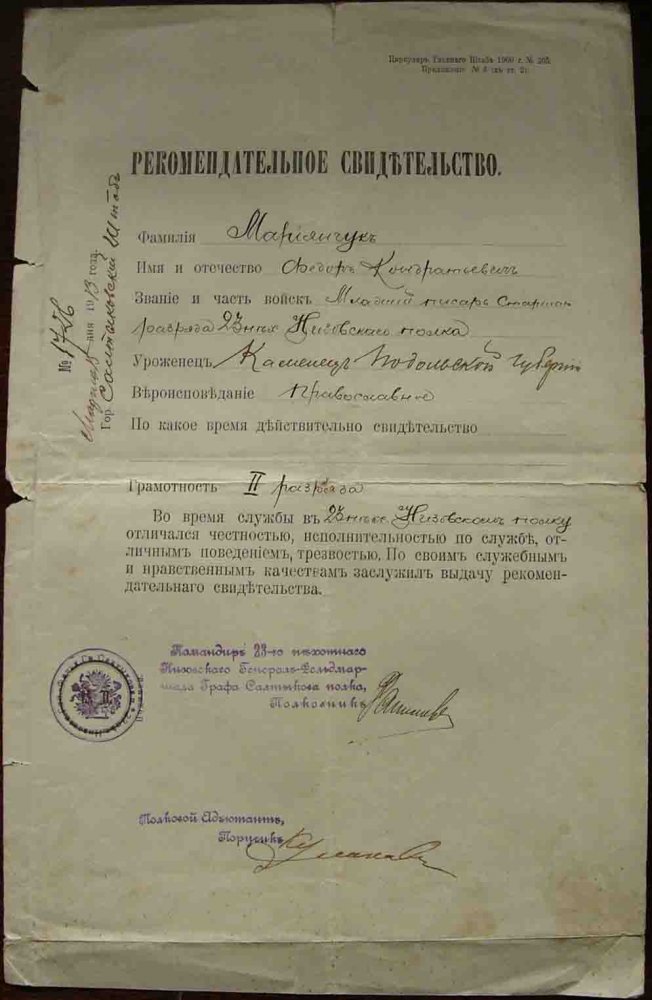 Циркуляръ Главнаго Штаба 1900 г. № 205.
Приложеніе № 3 (къ ст. 2).
РЕКОМЕНДАТЕЛЬНОЕ СВИДѢТЕЛЬСТВО.
№ 1726
дня 1913 года.
Гор. Салтыковскій Штабъ
Фамилія Маріянчукъ
Имя и отечество Ѳедоръ Кондратьевичъ
Званіе и часть войскъ Младшій писарь старшаго
разряда 23 пѣх. Низовскаго полка
Уроженец Каменецъ Подольской губерніи
Вѣроисповѣданіе Православное
По какое время дѣйствительно свидѣтельство
Грамотность II разряда
Во время службы въ 23 пѣх. Низовскомъ полку
отличался честностью, исполнительностью по службѣ, от-
личнымъ поведеніемъ, трезвостью. По своимъ служебнымъ
и нравственнымъ качествамъ заслужилъ выдачу рекомен-
дательнаго свидѣтельства.
Командиръ 23-го пѣхотнаго
Низовскаго Генералъ-Фельдмар-
шала Графа Салтыкова полка,
Полковникъ
Полковой Адъютантъ,
Поручикъ